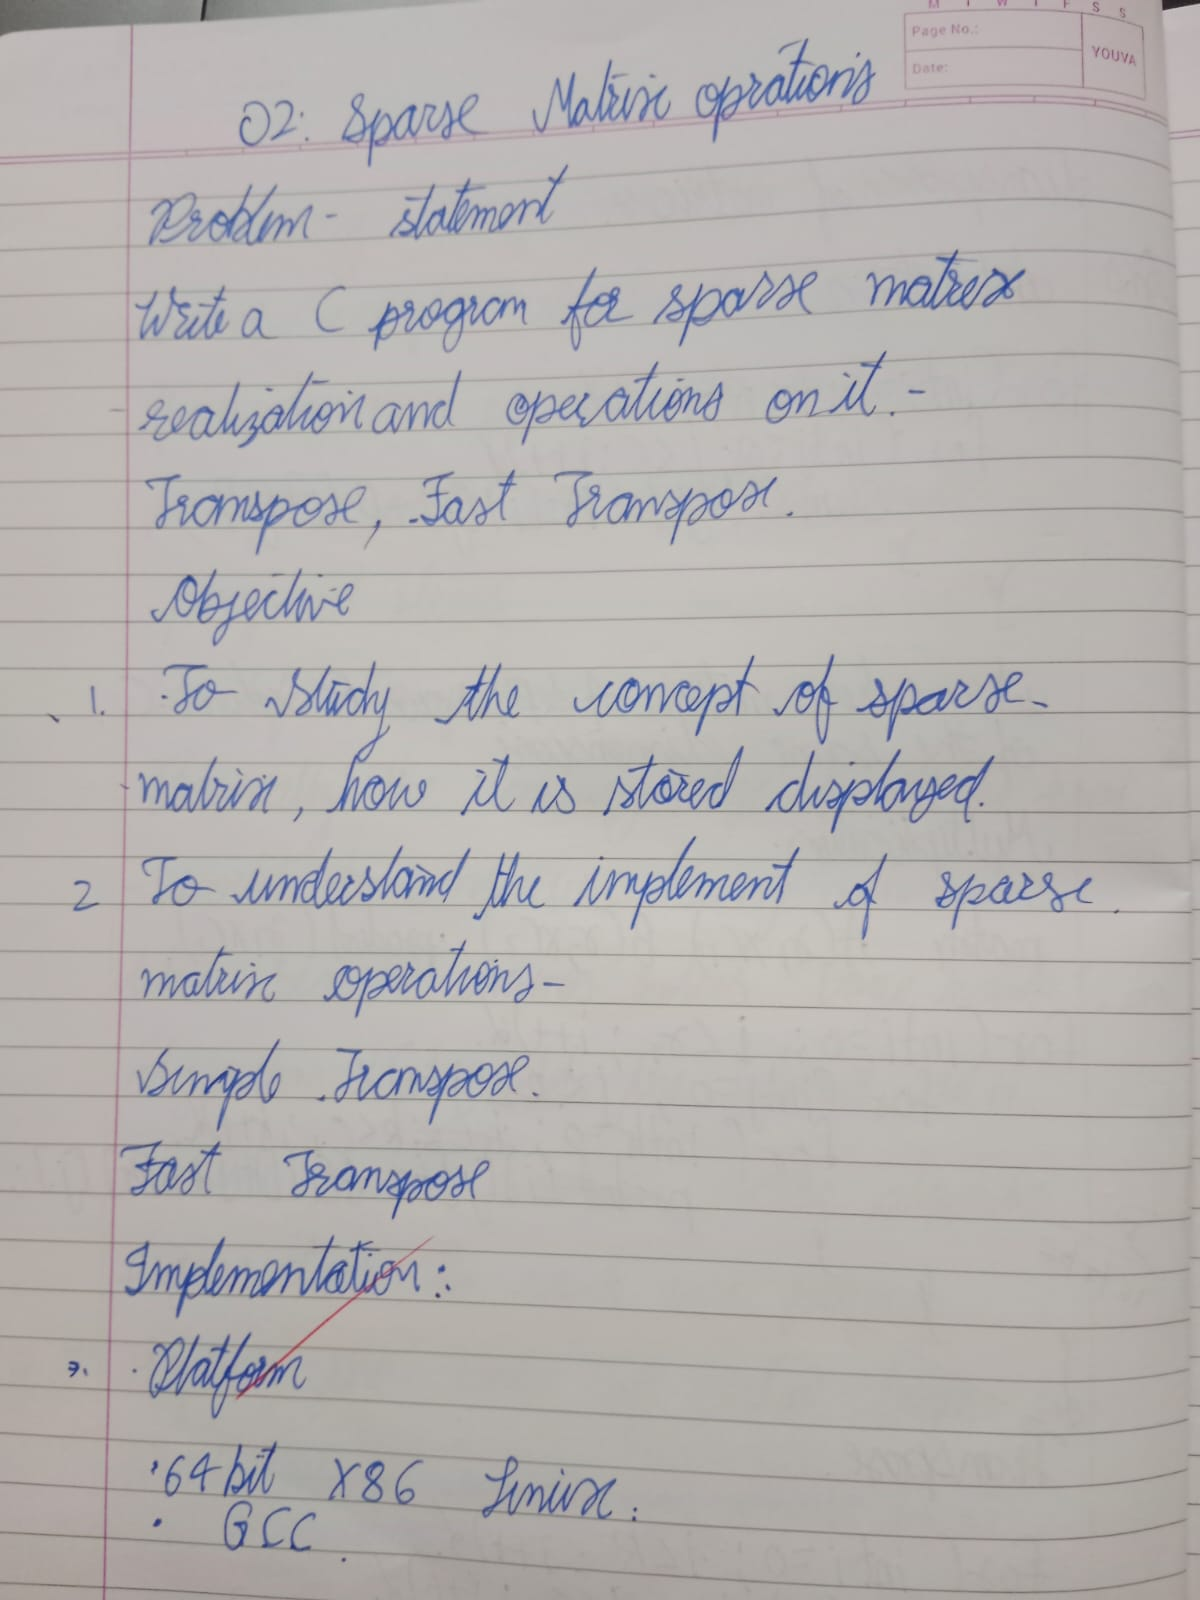 M T W T F S S
Page No.:
YOUVA
Date:
02: Sparse Matrix oprations
Problem - statement
Write a C program for sparse matrix
realization and operations on it. -
Transpose, Fast Transpose.
Objective
1. To study the concept of sparse -
matrix, how it is stored displayed.
2 To understand the implement of sparse.
matrix operations -
Simple Transpose.
Fast Transpose
Implementation :
3. Platform
• 64 bit X86 Linux.
• GCC.